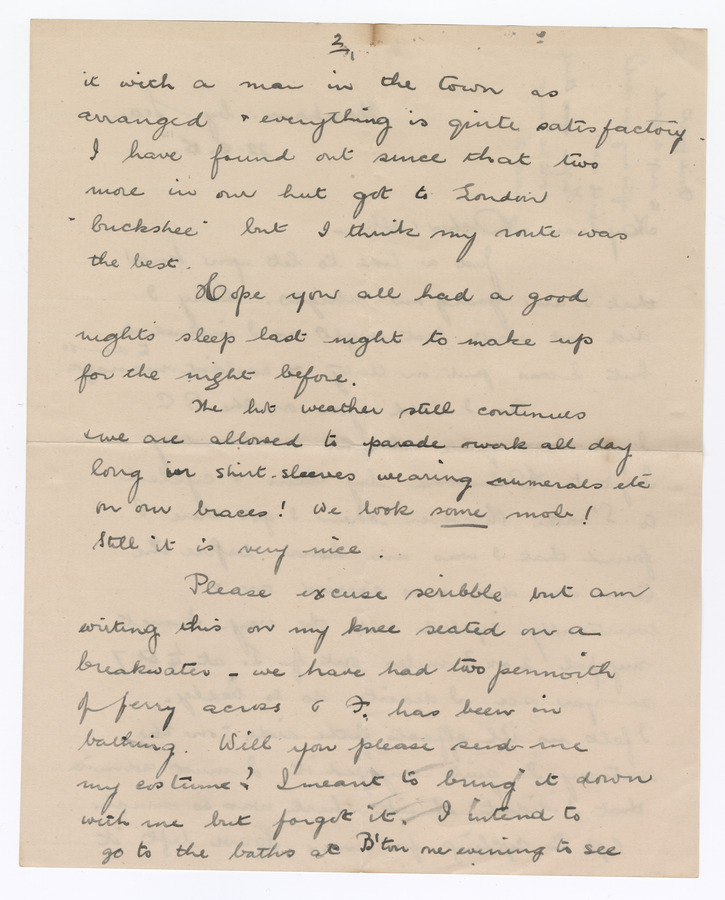 2,
it with a man in the town as
arranged & everything is quite satisfactory.
I have found out since that two
more in our hut got to London
"buckshee" but I think my route was
the best.
Hope you all had a good
night's sleep last night to make up
for the night before.
The hot weather still continues
& we are allowed to parade & work all day
long in shirt-sleeves wearing numerals etc
on our braces! We look some mob!
Still it is very nice.
Please excuse scribble but am
writing this on my knee seated on a
breakwater - we have had two pennorth
of ferry across & F. has been in
bathing. Will you please send me
my costume? I meant to bring it down
with me but forgot it. I intend to
go to the baths at B'ton one evening to see